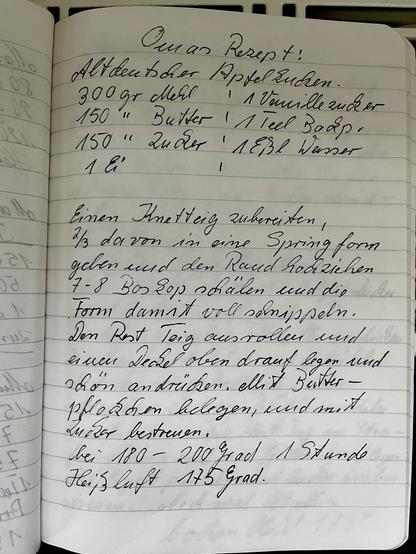 Omas Rezept!
Altdeutscher Apfelkuchen.
300 gr Mehl ' 1 Vanillezucker
150 " Butter ' 1 Teel Backp.
150 " Zucker ' 1 Eßl Wasser
1 Ei '
Einen Knetteig zubereiten,
2/3 davon in eine Springform
geben und den Rand hochziehen
7-8 Boskop schälen und die
Form damit voll schnippeln.
Den Rest Teig ausrollen und
einen Deckel oben drauf legen und
schön andrücken. Mit Butter-
pflöckchen belegen, und mit
Zucker bestreuen.
bei 180 - 200 Grad 1 Stunde
Heißluft 175 Grad.